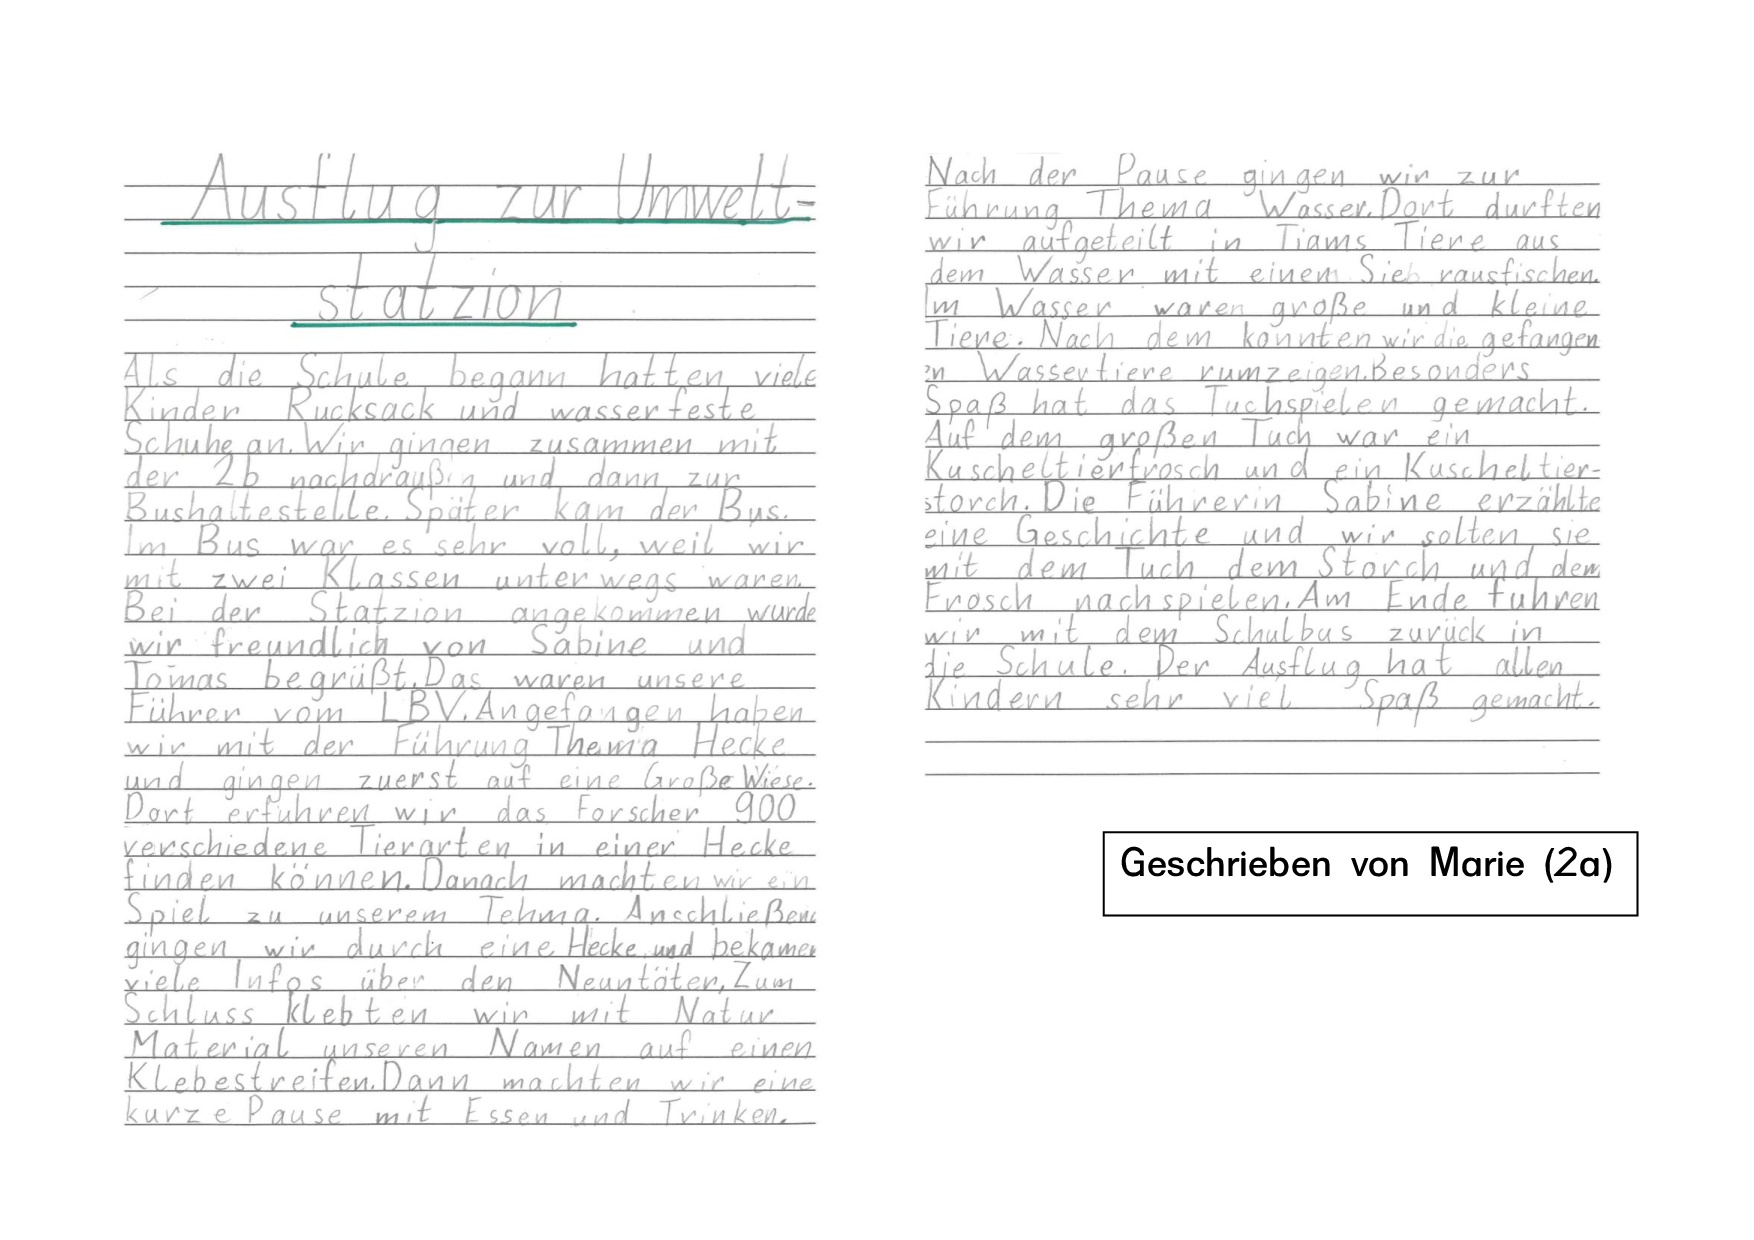 Ausflug zur Umwelt-
statzion
Als die Schule begann hatten viele
Kinder Rucksack und wasserfeste
Schuhe an. Wir gingen zusammen mit
der 2b nachdraußin und dann zur
Bushaltestelle. Später kam der Bus.
Im Bus war es sehr voll, weil wir
mit zwei Klassen unterwegs waren.
Bei der Statzion angekommen wurde
wir freundlich von Sabine und
Tomas begrüßt. Das waren unsere
Führer vom LBV. Angefangen haben
wir mit der Führung Thema Hecke
und gingen zuerst auf eine Große Wiese.
Dort erfuhren wir das Forscher 900
verschiedene Tierarten in einer Hecke
finden können. Danach machten wir ein
Spiel zu unserem Tehma. Anschließend
gingen wir durch eine Hecke und bekamen
viele Infos über den Neuntöter. Zum
Schluss klebten wir mit Natur
Material unseren Namen auf einen
Klebestreifen. Dann machten wir eine
kurze Pause mit Essen und Trinken.
Nach der Pause gingen wir zur
Führung Thema Wasser. Dort durften
wir aufgeteilt in Tiams Tiere aus
dem Wasser mit einem Sieb rausfischen.
Im Wasser waren große und kleine
Tiere. Nach dem konnten wir die gefangen
en Wassertiere rumzeigen. Besonders
Spaß hat das Tuchspielen gemacht.
Auf dem großen Tuch war ein
Kuscheltierfrosch und ein Kuscheltier-
storch. Die Führerin Sabine erzählte
eine Geschichte und wir solten sie
mit dem Tuch dem Storch und dem
Frosch nachspielen. Am Ende fuhren
wir mit dem Schulbus zurück in
die Schule. Der Ausflug hat allen
Kindern sehr viel Spaß gemacht.
Geschrieben von Marie (2a)